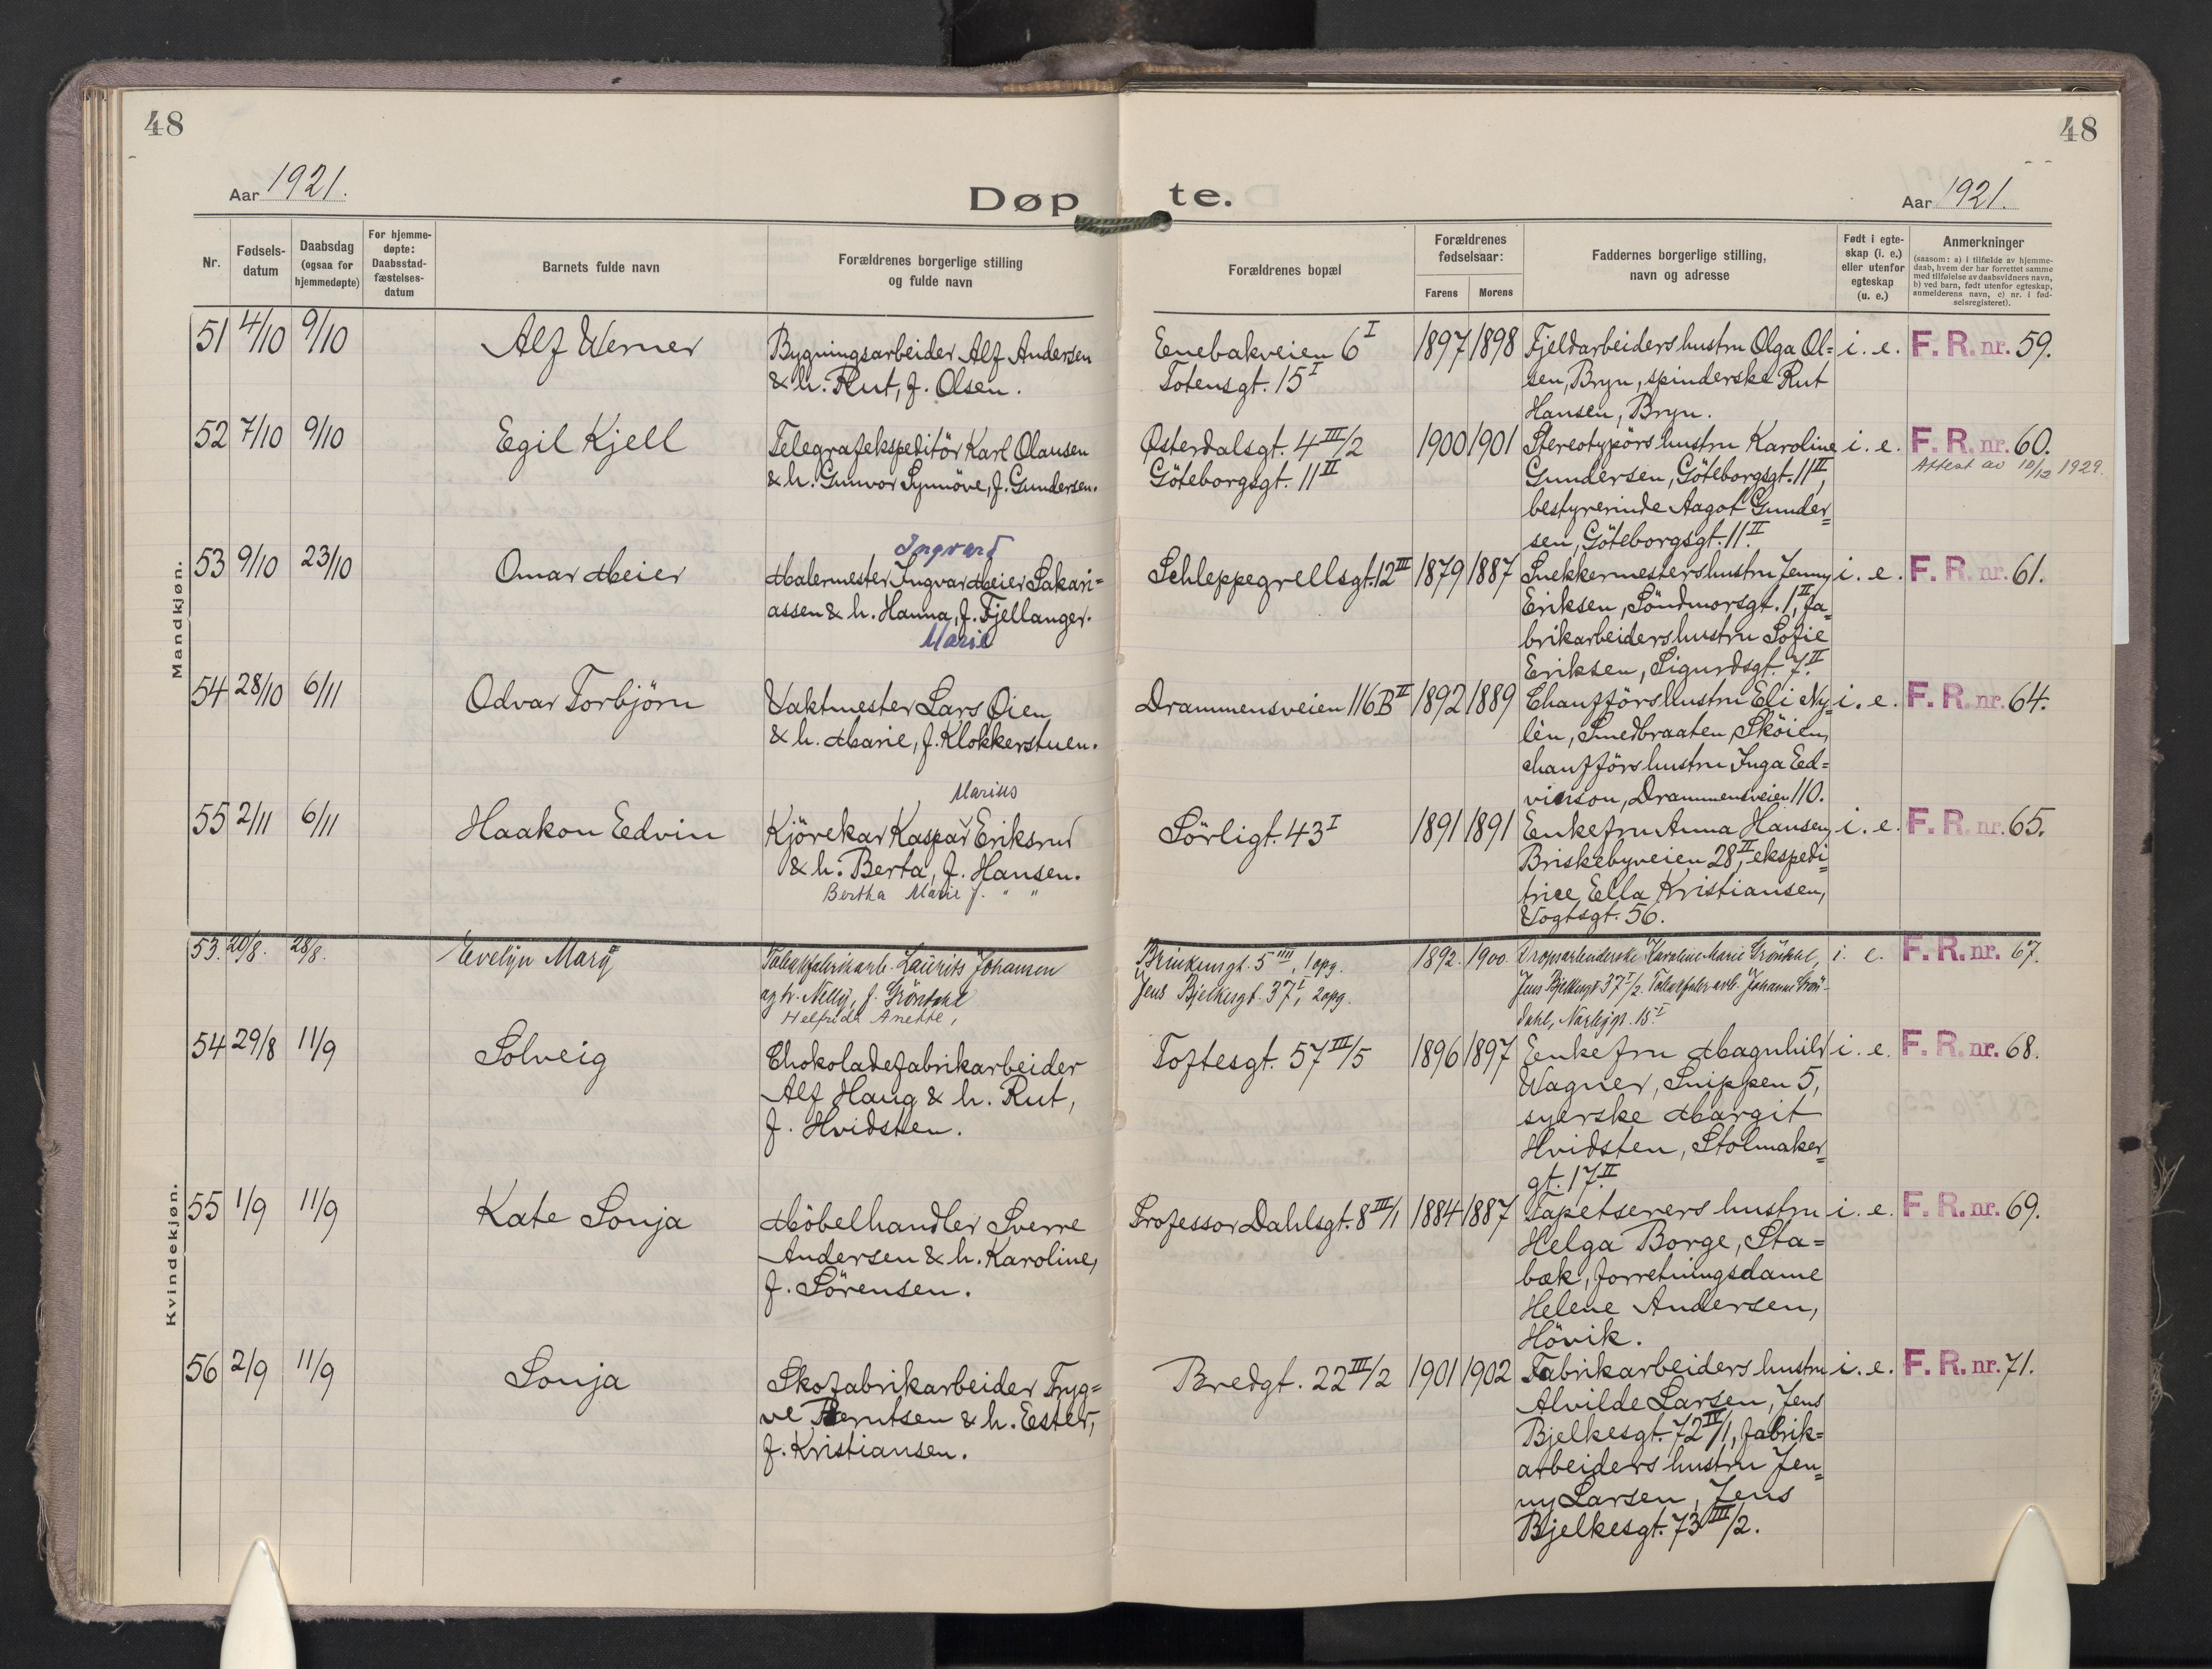 48
48
Aar 1921.
Døpte.
Aar 1921.
Nr.
Fødsels-
datum
Daabsdag
(ogsaa for
hjemmedøpte)
For hjemme-
døpte:
Daabsstad-
fæstelses-
datum
Barnets fulde navn
Forældrenes borgerlige stilling
og fulde navn
Forældrenes bopæl
Forældrenes
fødselsaar:
Farens
Morens
Faddernes borgerlige stilling,
navn og adresse
Født i egte-
skap (i. e.)
eller utenfor
egteskap
(u. e.)
Anmerkninger
(saasom: a) i tilfælde av hjemme-
daab, hvem der har forrettet samme
med tilføielse av daabsvidners navn,
b) ved barn, født utenfor egteskap,
anmelderens navn, c) nr. i fød-
selsregisteret).
Mandkjøn.
51 4/10 9/10 Alf Werner
Bygningsarbeider Alf Andersen
& h. Rut, f. Olsen.
Enebakveien 6 I
Totensgt. 15 I
1897 1898
Fjeldarbeiders hustru Olga Ol=
sen, Bryn, spinderske Rut
Hansen, Bryn.
i. e. F. R. nr. 59.
52 7/10 9/10 Egil Kjell
Telegrafekspeditör Karl Olausen
& h. Gunvor Synnöve, f. Gundersen.
Østerdalsgt. 4 III/2
Göteborgsgt. 11 II
1900 1901
Stereotypörs hustru Karoline
Gundersen, Göteborgsgt. 11 II,
bestyrerinde Aagot Gunder=
sen, Göteborgsgt. 11 II.
i. e. F. R. nr. 60.
Attest av 10/12 1929.
53 9/10 23/10 Omar Meier
Ingvard
Malermester Ingvar Meier Sakari=
assen & h. Hanna, f. Fjellanger.
Marie
Schleppegrellsgt. 12 III
1879 1887
Snekkermesters hustru Jenny
Eriksen, Söndmörsgt. 1 II, fa=
brikarbeiders hustru Sofie
Eriksen, Sigurdsgt. 7 II.
i. e. F. R. nr. 61.
54 28/10 6/11 Odvar Torbjörn
Vaktmester Lars Öien
& h. Marie, f. Klokkerstuen.
Drammensveien 116 B II
1892 1889
Chaufförs hustru Eli Ny=
lèn, Smedbraaten, Sköien,
chaufförs hustru Inga Ed=
vinson, Drammensveien 110.
i. e. F. R. nr. 64.
55 2/11 6/11 Haakon Edvin
Marius
Kjörekar Kaspar Eriksrud
& h. Berta, f. Hansen.
Bertha Marie f. " "
Sörligt. 43 I
1891 1891
Enkefru Anna Hansen,
Briskebyveien 28 II, ekspedi=
trice Ella Kristiansen,
Vogtsgt. 56.
i. e. F. R. nr. 65.
Kvindekjøn.
53. 20/8. 28/8. Evelyn Mary
Tobakfabrikarb. Laurits Johansen
og h. Nelly, f. Gröndahl
Helfrida Anette,
Brinkensgt. 5 III, 1 opg.
Jens Bjelkesgt. 37 I, 2 opg.
1892. 1900.
Dropsarbeiderske Karoline Marie Gröndahl,
Jens Bjelkesgt 37 I/2. Tobakfabr.arb. Johanne Grön-
dahl, Norbygt. 15 I
i. e. F. R. nr. 67.
54 29/8 11/9 Solveig
Chokoladefabrikarbeider
Alf Haug & h. Rut,
f. Hvidsten.
Toftesgt. 57 III/5
1896 1897
Enkefru Magnhild
Wagner, Snippen 5,
syerske Margit
Hvidsten, Stolmaker=
gt. 17 II
i. e. F. R. nr. 68.
55 1/9 11/9 Kate Sonja
Möbelhandler Sverre
Andersen & h. Karoline,
f. Sörensen.
Professor Dahlsgt. 8 III/1
1884 1887
Tapetserers hustru
Helga Borge, Sta=
bæk, forretningsdame
Helene Andersen,
Hövik.
i. e. F. R. nr. 69.
56 2/9 11/9 Sonja
Skofabrikarbeider Tryg=
ve Berntsen & h. Ester,
f. Kristiansen.
Bredgt. 22 III/2
1901 1902
Fabrikarbeiders hustru
Alvilde Larsen, Jens
Bjelkesgt. 72 IV/1, fabrik=
arbeiders hustru Jen=
ny Larsen, Jens
Bjelkesgt. 73 III/2.
i. e. F. R. nr. 71.